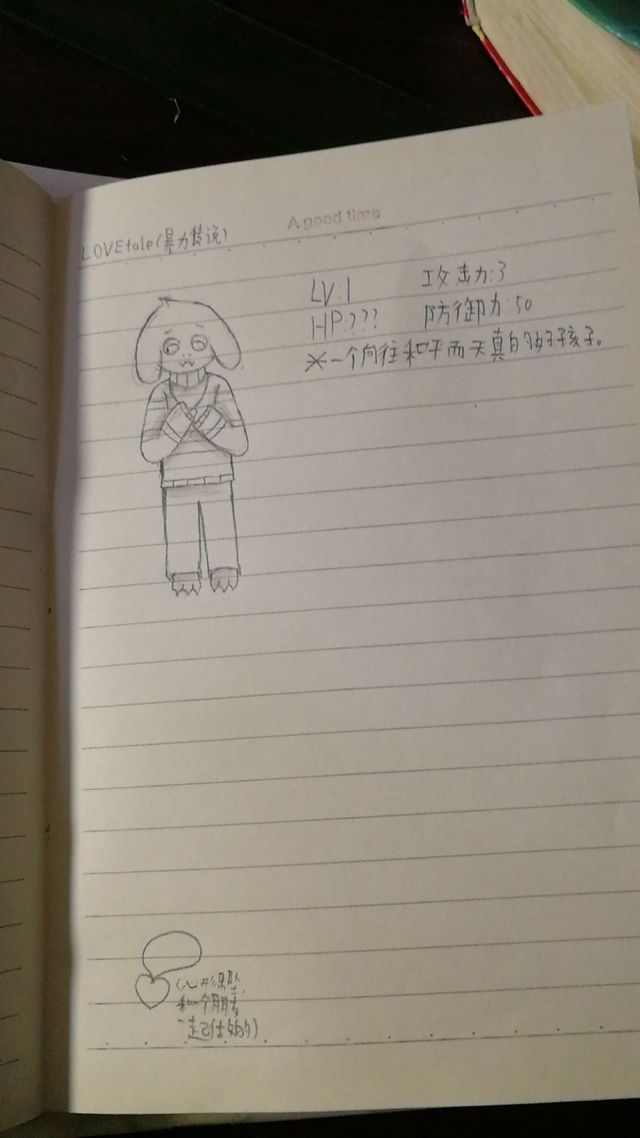 A good time
LOVEtale(暴力传说)
LV:1 攻击力:3
HP:??? 防御力:50
*一个向往和平而天真的好孩子。
(心形吊坠,
和一个朋友
一起